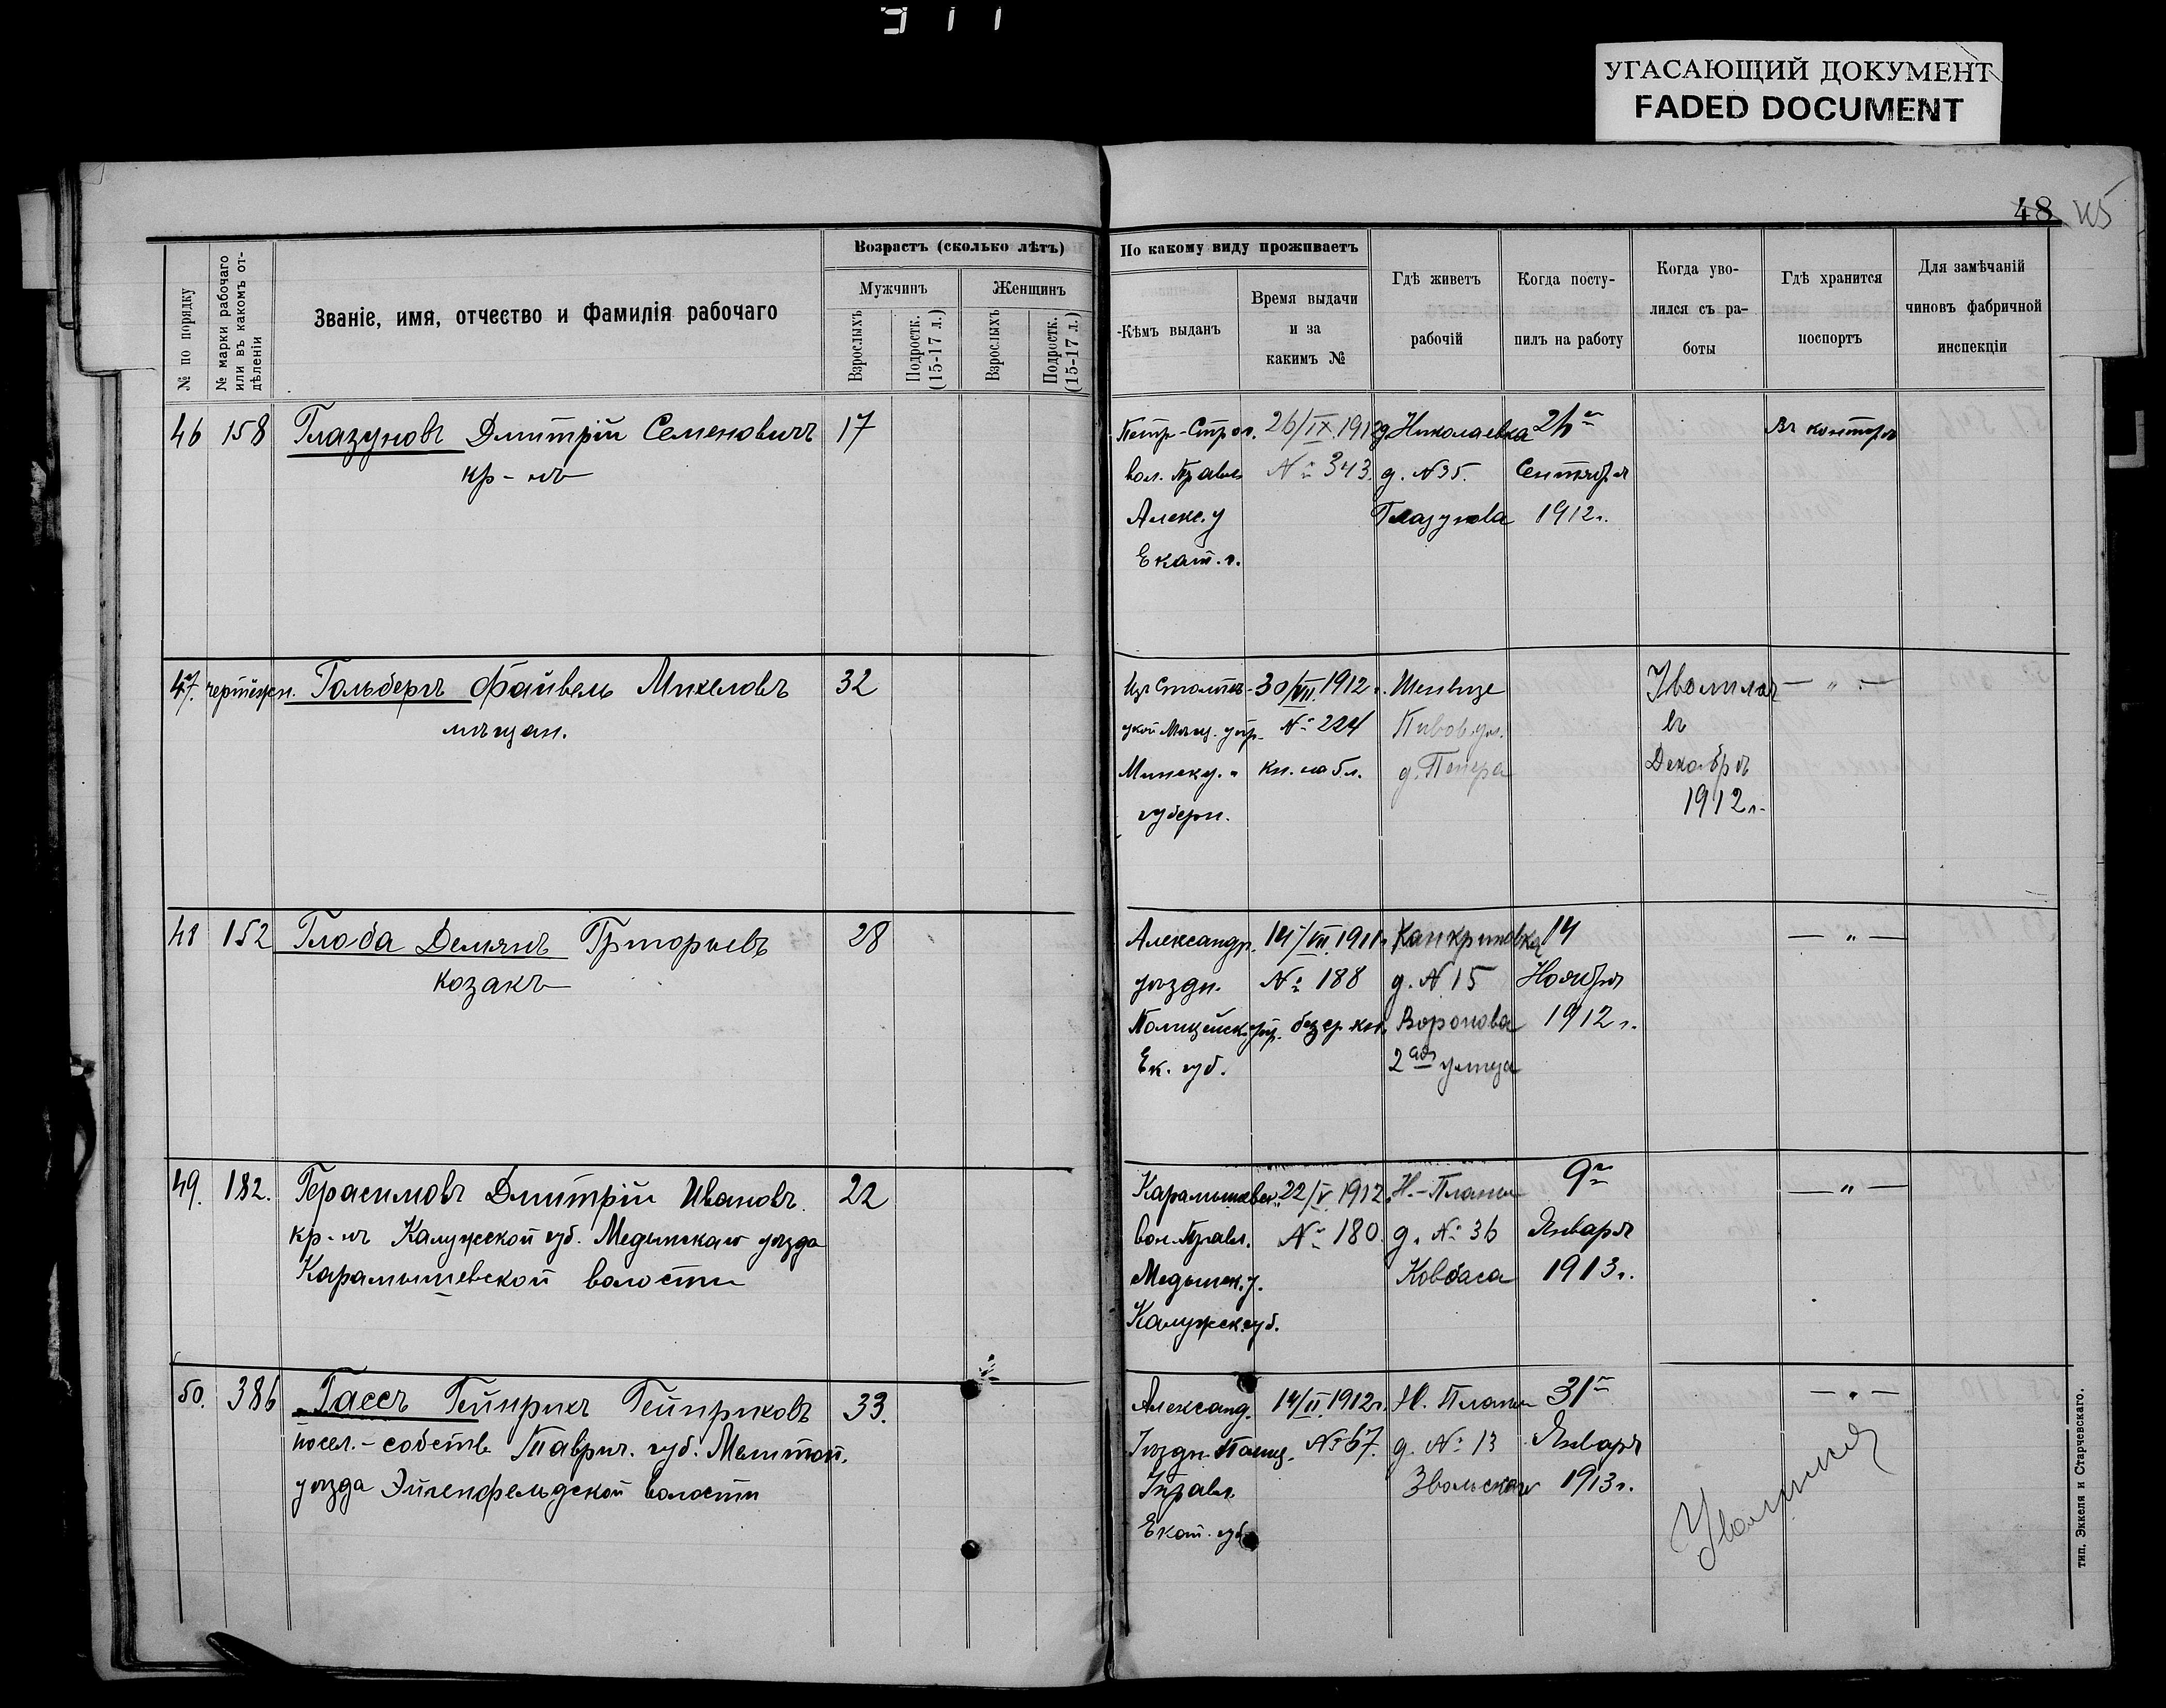 311
УГАСАЮЩИЙ ДОКУМЕНТ
FADED DOCUMENT
48 45
№ по порядку
№ марки рабочаго или въ какомъ отдѣленіи
Званіе, имя, отчество и фамилія рабочаго
Возрастъ (сколько лѣтъ)
Мужчинъ
Женщинъ
Взрослыхъ
Подростк. (15-17 л.)
Взрослыхъ
Подростк. (15-17 л.)
По какому виду проживаетъ
Кѣмъ выданъ
Время выдачи
и за
какимъ №
Гдѣ живетъ
рабочій
Когда посту-
пилъ на работу
Когда уво-
лился съ ра-
боты
Гдѣ хранится
поспортъ
Для замѣчаній
чиновъ фабричной
инспекціи
46 158 Глазуновъ Дмитрій Семеновичъ 17
кр-нъ
Петр-Стров.
вол. Правл.
Алекс. у
Екат. г.
26/IX 1912
№ 343.
Николаевка
д. №35.
Глазунова
26го
Сентября
1912г.
Въ конторѣ
47. чертежн. Гольбергъ Файвель Михелевъ 32
мѣщан.
30/VII 1912г.
№ 224
Минск. г.
губерн.
Шенвизе
Уволился
въ
Декабрѣ
1912г.
— „ —
48 152 Глоба Демянъ Григорьевъ 28
козакъ
Александр.
уѣздн.
Полицейск. упр.
Ек. губ.
14/VII 1911г.
№ 188
Канкриновка
д. № 15
Воронова
2ая улица
14
Ноября
1912г.
— „ —
49. 182. Герасимовъ Дмитрій Ивановъ. 22
кр-нъ Калужской губ. Медынскаго уѣзда
Карамышевской волости
Карамышевск.
вол. Правл.
Медынск. у.
Калужск. губ.
22/V 1912
№ 180.
Н.-Планъ
д. № 36
Ковбаса
9го
Января
1913г.
— „ —
50. 386 Гассъ Гейнрихъ Гейнриховъ 33.
посел.-собств Таврич. губ. Мелитоп.
уѣзда Эйгенфельдской волости
Александ.
Уѣздн. Полиц.
Управл.
Екат. губ.
14/II 1912г.
№ 67.
Н. Планъ
д. № 13
Звольскаго
31го
Января
1913г.
Уволился
— „ —
тип. Эккеля и Старчевскаго.